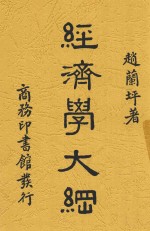 趙蘭坪著
經濟學大綱
商務印書館發行